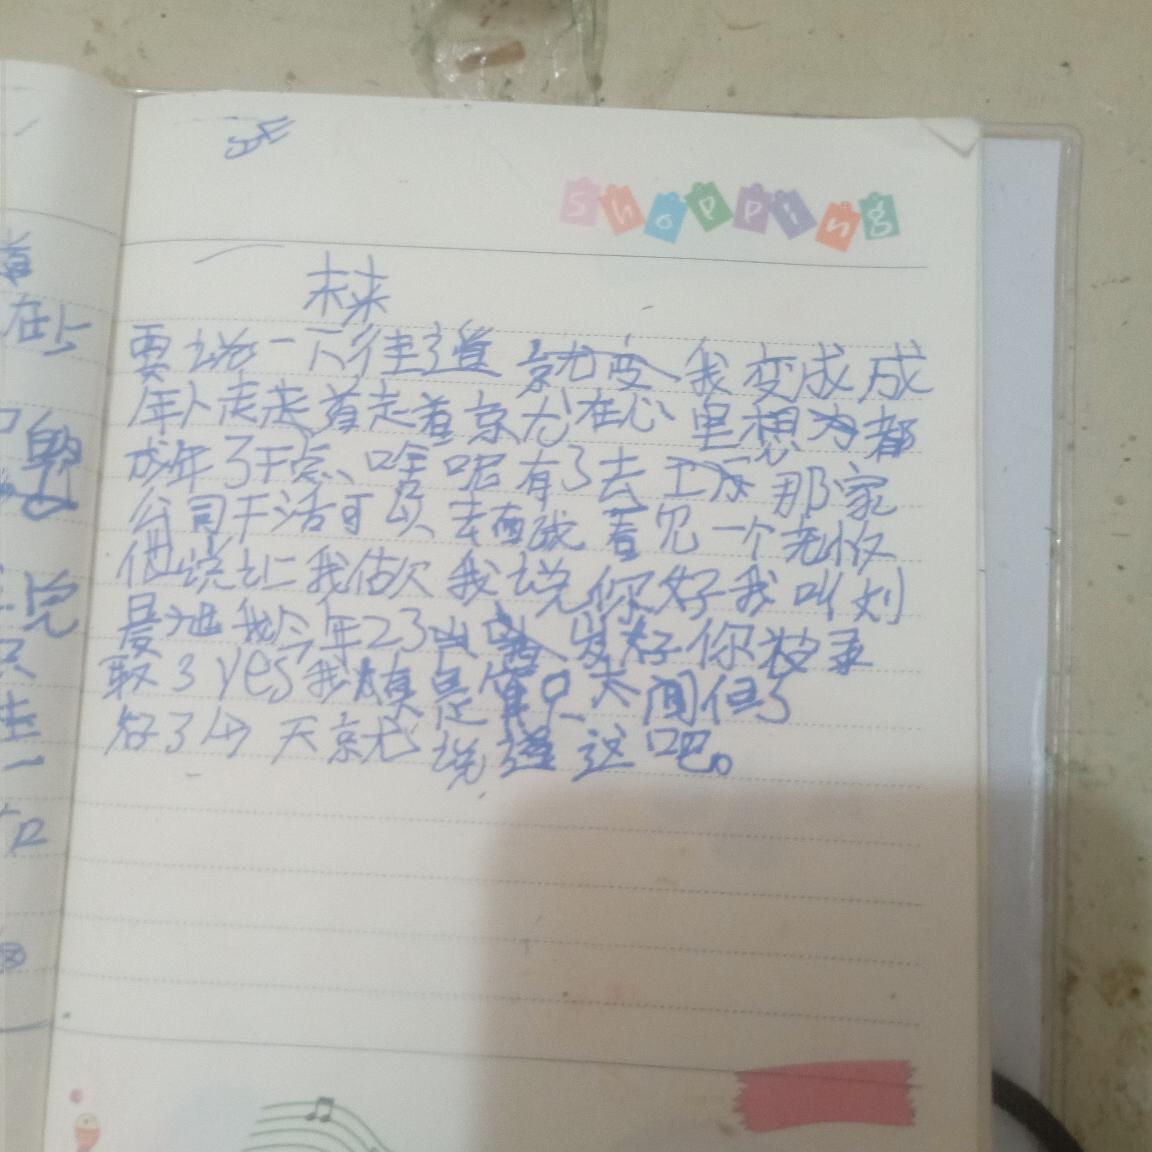 shopping
未来
要说一下往道就变我变成成
年人走走着走着就在心里想为都
成年了干点啥呢有了去工厂那家
公司干活可以去面试看见一个老板
他说让我做我说你好我叫刘
晨旭我今年23岁好你被录
取了yes我真是天
好了今天就说道这吧。